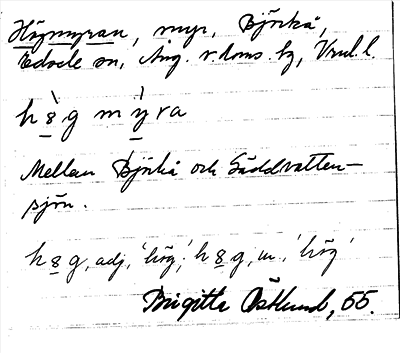 Högmyran, myr, Björkå,
Edsele sn, Ång. v doms. hg, Vnrl. l.
hög mýra
Mellan Björkå och Gäddvatten-
sjön.
hög, adj, 'hög', hög, m., 'hög'
Brigitta Östlund, 55.